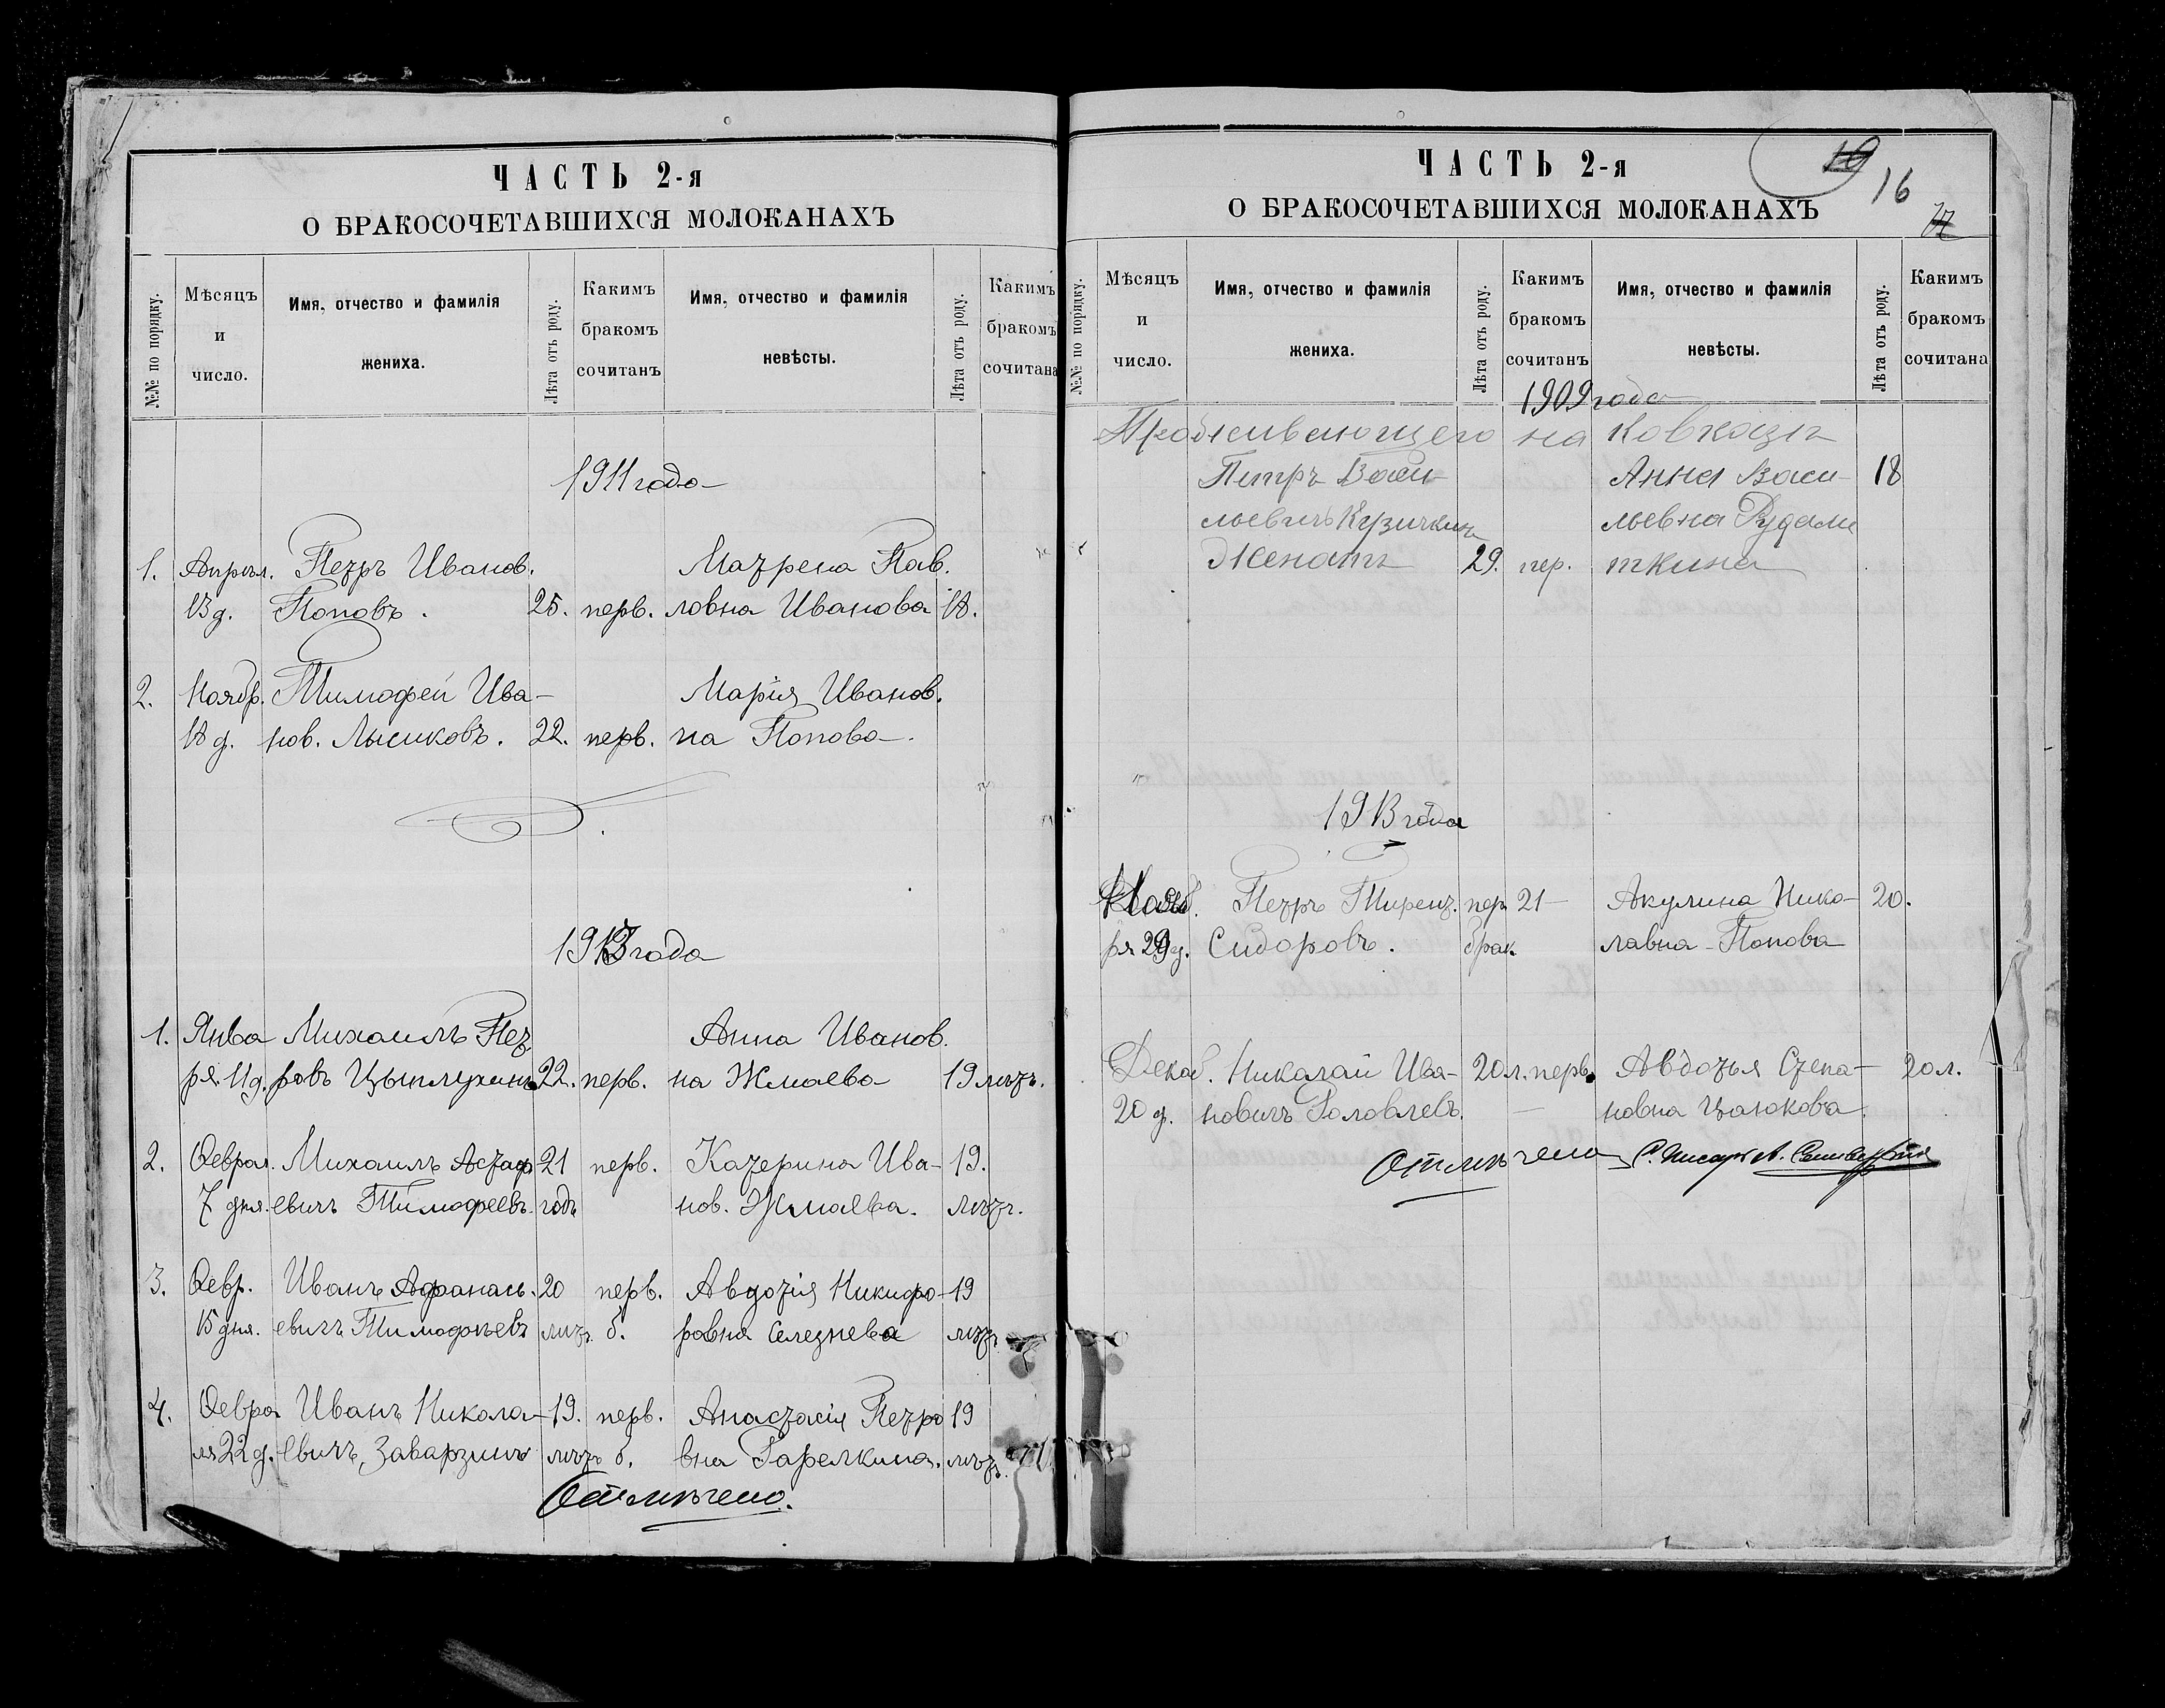 ЧАСТЬ 2-я
О БРАКОСОЧЕТАВШИХСЯ МОЛОКАНАХЪ
№№ по порядку.
Мѣсяцъ и число.
Имя, отчество и фамилія жениха.
Лѣта отъ роду.
Какимъ бракомъ сочитанъ
Имя, отчество и фамилія невѣсты.
Лѣта отъ роду.
Какимъ бракомъ сочитана
1911 года
1. Апрѣл. Петръ Иванов. Матрена Пав.
13 д. Поповъ. 25. перв. ловна Иванова 18.
2. Ноябр. Тимофей Ива-
Марія Иванов.
18 д. нов. Лысиковъ. 22. перв. на Попова.
1913 года
1. Янва Михаилъ Пет Анна Иванов.
ря. 11 д. ровъ 22. перв. на Жмаева 19 лѣтъ.
2. Феврал. Михаилъ Астаф 21 перв. Катерина Ива- 19.
7 дня. евичъ Тимофеевъ. годъ нов. Жмаева. лѣтъ.
3. Февр. Иванъ Афанась. 20 перв. Авдотія Никифо- 19
15 дня. евичъ Тимофѣевъ лѣтъ б. ровна Селезнева лѣтъ
4. Февра Иванъ Никола- 19. перв. Анастасія Петро 19
ля 22 д. евичъ Заварзинъ лѣтъ б. вна Гарелкина. лѣтъ.
Отмѣчено.
ЧАСТЬ 2-я
О БРАКОСОЧЕТАВШИХСЯ МОЛОКАНАХЪ
16
№№ по порядку.
Мѣсяцъ и число.
Имя, отчество и фамилія жениха.
Лѣта отъ роду.
Какимъ бракомъ сочитанъ
Имя, отчество и фамилія невѣсты.
Лѣта отъ роду.
Какимъ бракомъ сочитана
1909 года
Проживающего на Ковказъ
Петръ Васи- Анна Васи- 18
льевичъ Кузичкинъ льевна Рудоме
Женатъ 29. пер. ткина
1913 года
Нояб. Петръ пер 21 Акулина Нико- 20.
ря 29 д. Сидоровъ. брак. лавна Попова
Декаб. Николай Ива- 20 л. перв. Авдотья Степа- 20 л.
20 д. новичъ Головлевъ. новна Цалюкова.
Отмѣчено С. Писарь